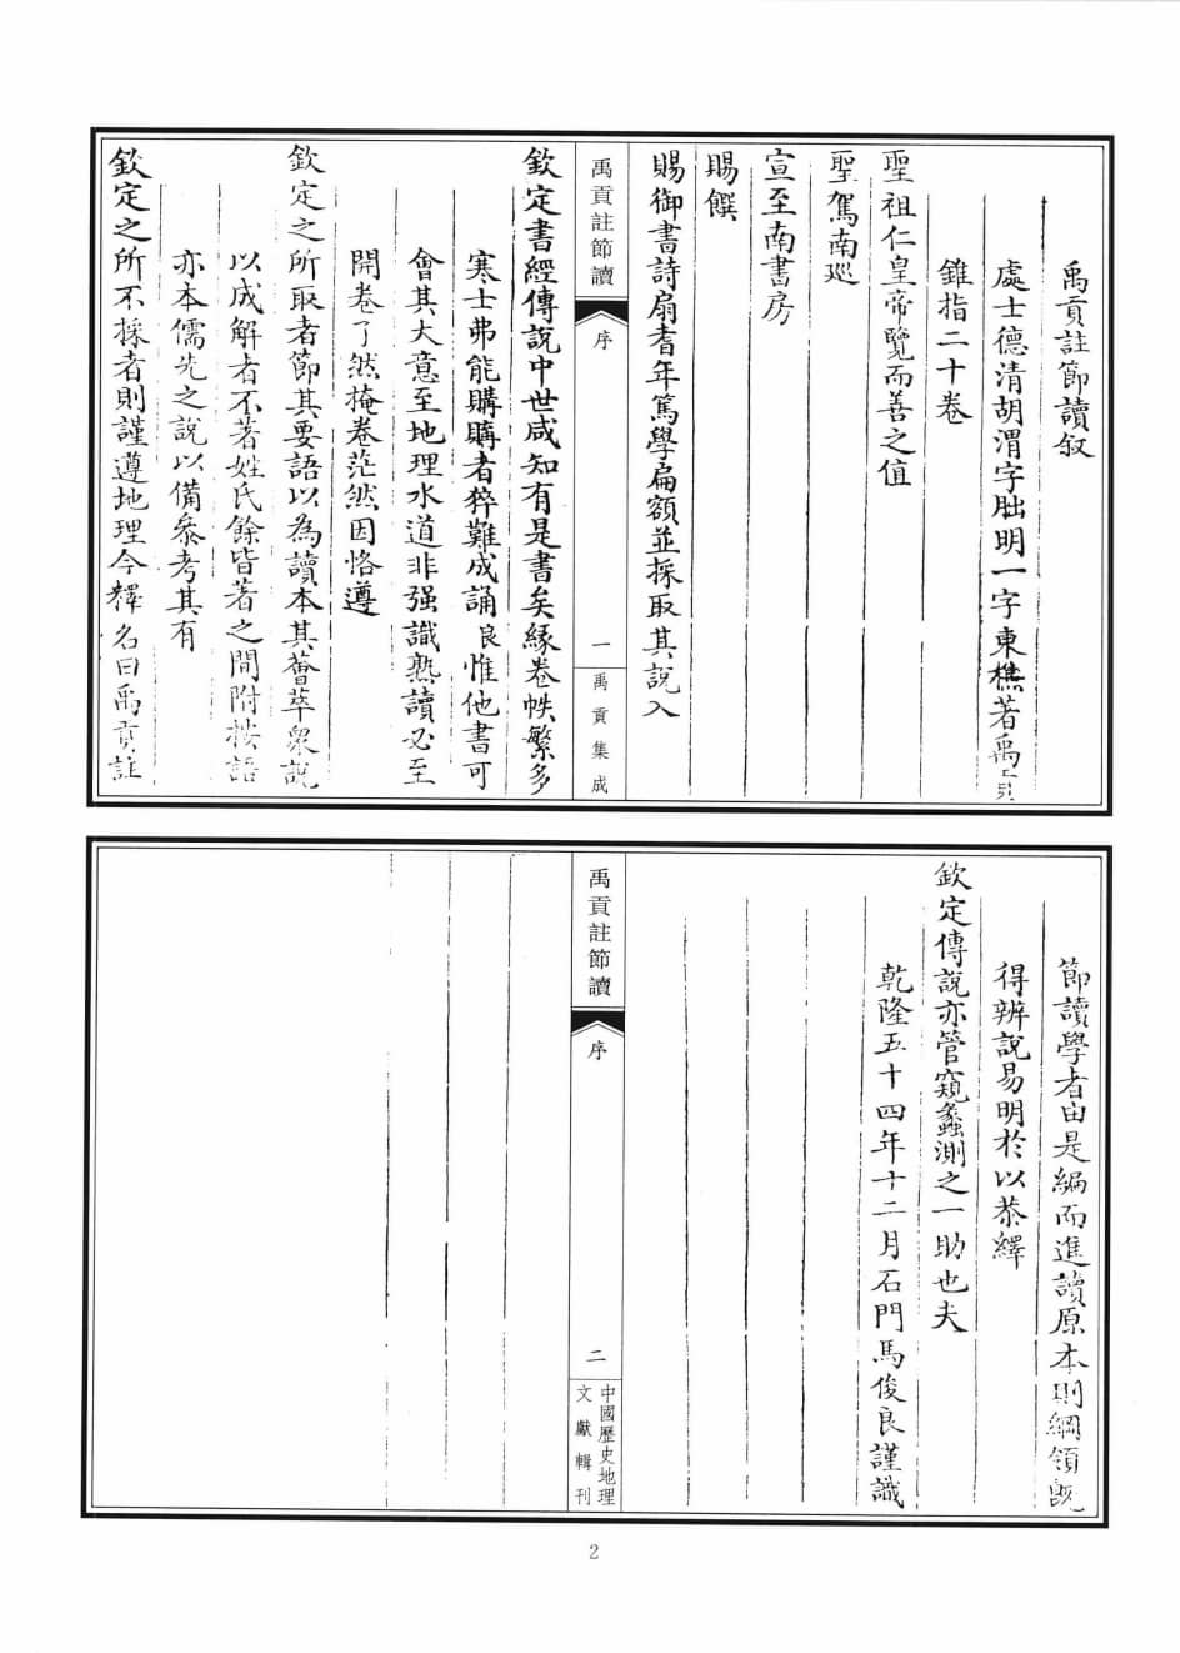 禹貢註節讀敘
處士德清胡渭字朏明一字東樵著禹貢
錐指二十卷
聖祖仁皇帝覽而善之值
聖駕南巡
宣至南書房
賜饌
賜御書詩扇耆年篤學扁額並採取其說入
禹貢註節讀
序
一
禹貢集成
欽定書經傳說中世咸知有是書矣緣卷帙繁多
寒士弗能購購者猝難成誦良惟他書可
會其大意至地理水道非强識熟讀必至
開卷了然掩卷茫然因恪遵
欽定之所取者節其要語以為讀本其薈萃衆說
以成解者不著姓氏餘皆著之間附按語
亦本儒先之說以備叅考其有
欽定之所不採者則謹遵地理今釋名曰禹貢註
節讀學者由是編而進讀原本則綱領旣
得辨說易明於以恭繹
欽定傳說亦管窺蠡測之一助也夫
乾隆五十四年十二月石門馬俊良謹識
禹貢註節讀
序
二
中國歷史地理
文獻輯刊
2